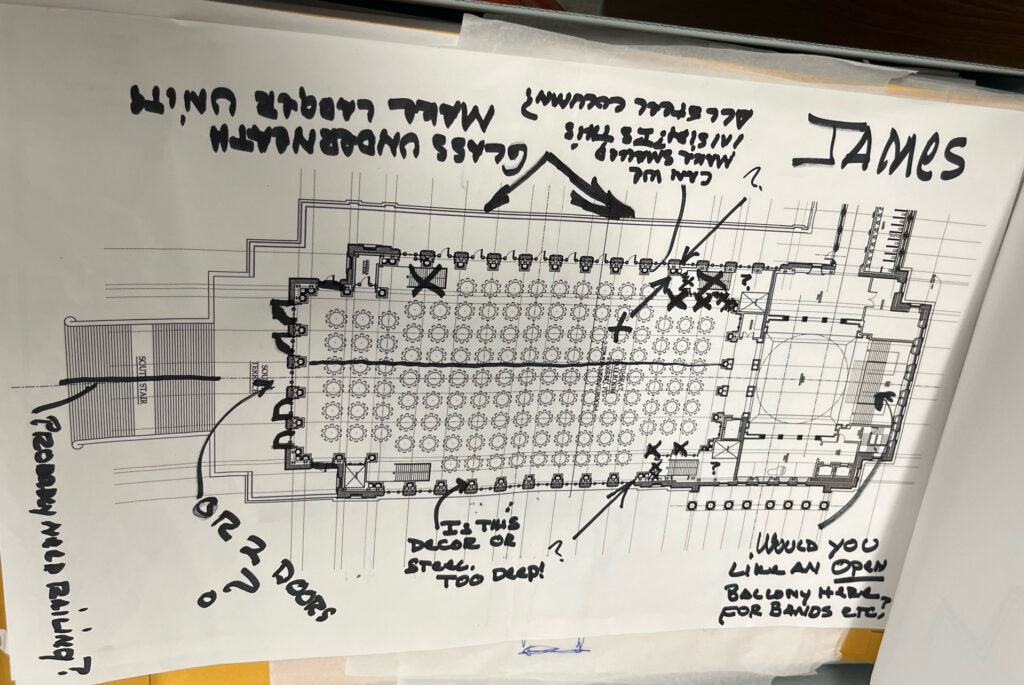 JAMES
GLASS UNDERNEATH
MAKE LARGER UNITS
CAN WE
MAKE SMALLER
INSIDE IS THIS
ALL STEEL COLUMN?
?
?
?
SOUTH STAIR
PROBABLY NEED RAILING?
OR 2 DOORS
?
IS THIS
DECOR OR
STEEL.
TOO DEEP!
?
WOULD YOU
LIKE AN OPEN
BALCONY HERE
FOR BANDS ETC?